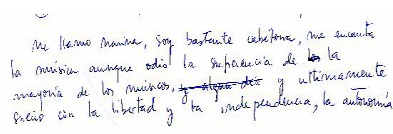 me llamo marina, soy bastante cabezona, me encanta
la música aunque odio la suficiencia de la
mayoría de los músicos, y ultimamente
sueño con la libertad y la independencia, la autonomía